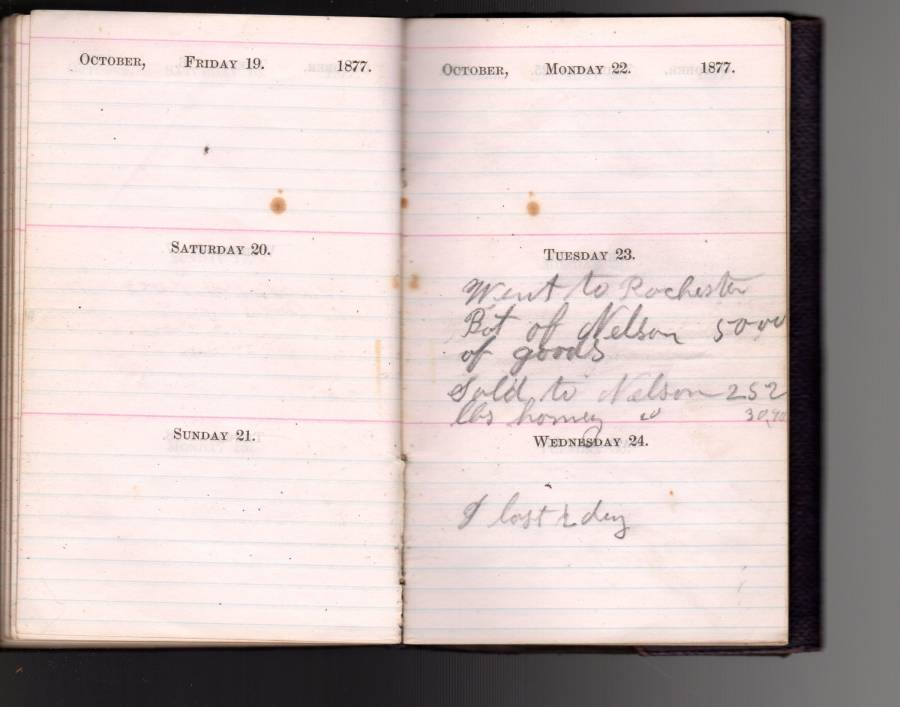 October, Friday 19. 1877.
Saturday 20.
Sunday 21.
October, Monday 22. 1877.
Tuesday 23.
Went to Rochester
Bot of Nelson 50 00
of goods
Sold to Nelson 252
lbs honney
Wednesday 24.
I lost ½ day